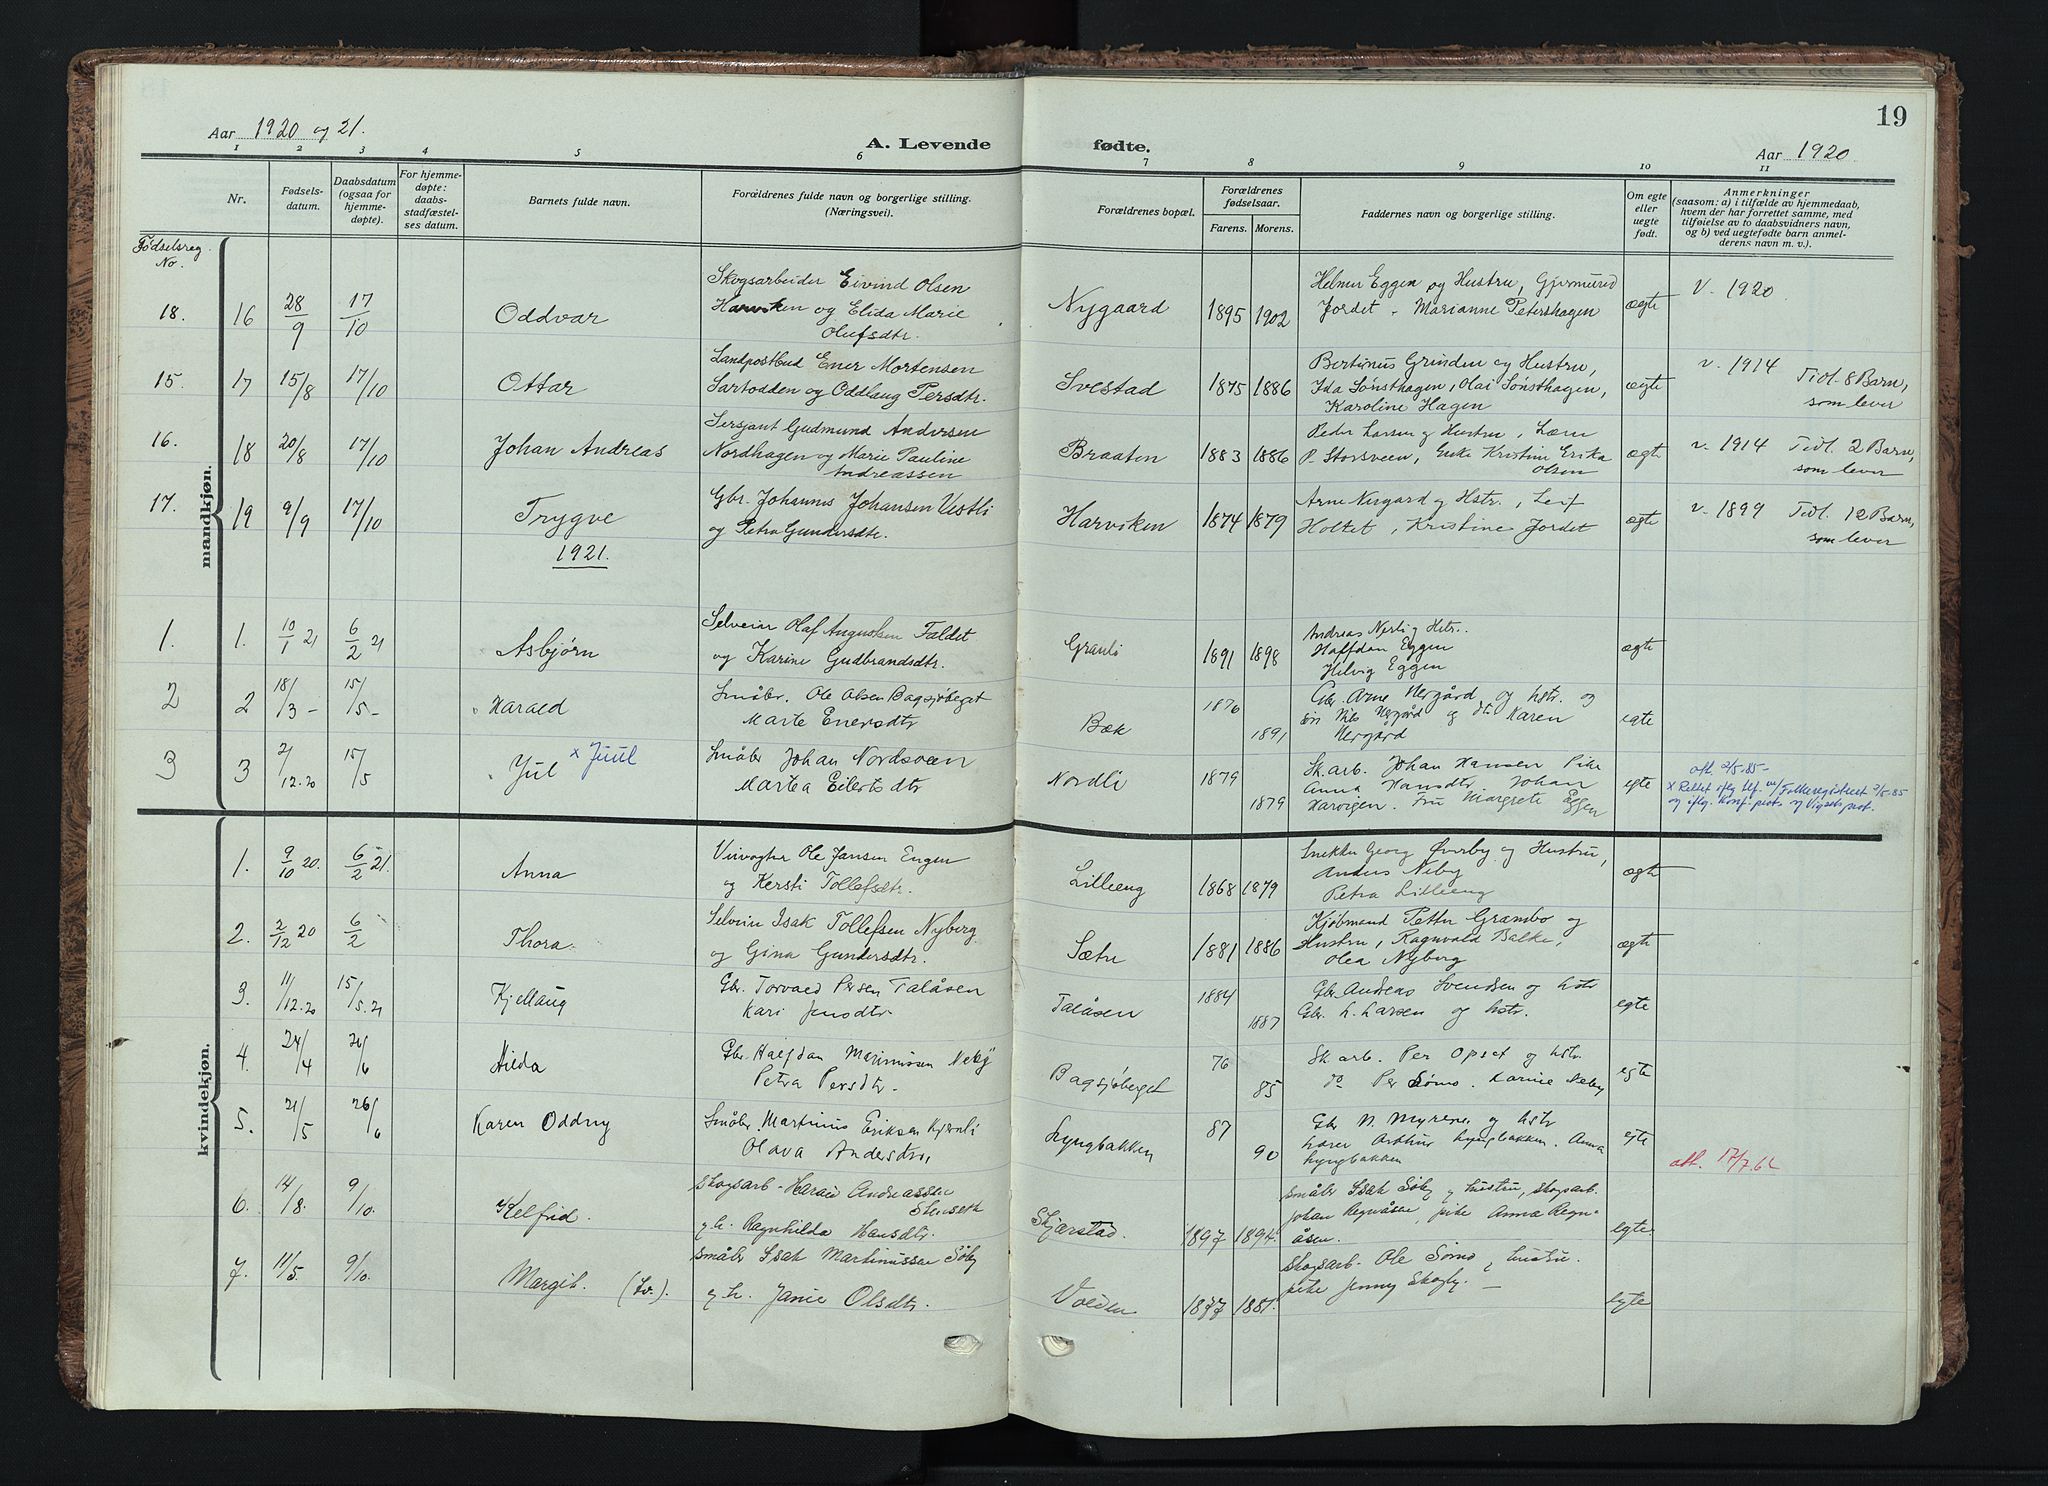 19
Aar 1920 og 21.
A. Levende fødte.
Aar 1920
1 2 3 4 5 6 7 8 9 10 11
Nr.
Fødsels-
datum.
Daabsdatum
(ogsaa for
hjemme-
døpte).
For hjemme-
døpte:
daabs-
stadfæstel-
ses datum.
Barnets fulde navn.
Forældrenes fulde navn og borgerlige stilling.
(Næringsvei).
Forældrenes bopæl.
Forældrenes
fødselsaar.
Farens. Morens.
Faddernes navn og borgerlige stilling.
Om egte
eller
uegte
født.
Anmerkninger
(saasom: a) i tilfælde av hjemmedaab,
hvem der har forrettet samme, med
tilføielse av to daabsvidners navn,
og b) ved uegtefødte barn anmel-
derens navn m. v.).
Fødselsreg
No.
mandkjøn.
18. 16 28/9 17/10 Oddvar
Skogsarbeider Eivind Olsen
Harviken og Elida Marie
Olufsdtr.
Nygaard 1895 1902
Helmer Eggen og Hustru, Gjermund
Jordet - Marianne Petershagen
ægte V. 1920
15. 17 15/8 17/10 Ottar
Landpostbud Ener Mortensen
Sartodden og Oddlaug Persdtr.
Svestad 1875 1886
Bertinus Grinder og Hustru,
Ida Sønsthagen, Olai Sønsthagen,
Karoline Hagen
ægte v. 1914 Tidl. 8 Barn,
som lever
16. 18 20/8 17/10 Johan Andreas
Sersjant Gudmund Andersen
Nordhagen og Marie Pauline
Andreassen
Braaten 1883 1886
Peder Larsen og Hustru, Lærer
P. Storsveen, Enke Kristine Erika
Olsen
ægte v. 1914 Tidl. 2 Barn,
som lever
17. 19 9/9 17/10 Trygve
Gbr. Johannes Johansen Vestli
og Petra Gundersdtr.
Harviken 1874 1879
Arne Nergard og Hstr., Leif
Holtet, Kristine Jordet
ægte v. 1899 Tidl. 12 Barn,
som lever
1921.
1. 1. 10/1 21 6/2 21 Asbjørn
Selveier Olaf Augustsen Faldet
og Karine Gudbrandsdtr.
Granli 1891 1898
Andreas Nerli og Hstr.
Halfdan Eggen
Hilvig Eggen
ægte
2 2 18/3 - 15/5 - Harald
Småbr. Ole Olsen Bagsjøberget
Marte Enersdtr
Bæk 1876 1891
Gbr. Arne Nergård og hstr. og
søn Nils Nergård og dtr Karen
Nergård
egte
3 3 2/12.20 15/5 Jul x Juul
Småbr Johan Nordsveen
Martea Eilertsdtr
Nordli 1879 1879
Sk.arb. Johan Hansen Pike
Anna Hansdtr Johan
Harvigen. Fru Margrete Eggen
egte
att. 2/5-85-
x Rettet iflg tlf. m/Folkeregisteret 2/5-85
og iflg. Konf. prot. og Vigsels prot.
kvindekjøn.
1. 9/10 20. 6/2 21. Anna
Veivogter Ole Jansen Engen
og Kersti Tollefsdtr.
Lilleeng 1868 1879
Snekker Georg Øverby og Hustru,
Anders Neby
Petra Lilleeng
ægte
2. 2/12 20 6/2 Thora
Selveier Isak Tollefsen Nyberg
og Gina Gundersdtr.
Sætre 1881 1886
Kjøbmand Petter Grambo og
Hustru, Ragnvald Balke,
Olea Nyberg
ægte
3. 11/12.20 15/5.21 Kjellaug
Gbr. Torvald Persen Talåsen
Kari Jensdtr
Talåsen 1884 1887
Gbr. Andreas Svendsen og hstr
Gbr. L. Larsen og hstr.
egte
4. 24/4 26/6 Hilda
Gbr. Halfdan Marinussen Neby
Petra Persdtr.
Bagsjøberget 76 85
Sk.arb. Per Opset og hstr.
do Per Sømo. Karine Neby
egte
5. 21/5 26/6 Karen Oddny
Småbr. Martinus Eriksen Kjernli
Olava Andersdtr.
Lyngbakken 87 90
Gbr N. Myrene og hstr
Lærer Arthur Lyngbakken. Anna
Lyngbakken
egte
att. 17/7.62
6. 14/8. 9/10. Kelfrid.
Skogsarb. Harald Andreassen
Stenseth
og h. Ragnhilda Hansdtr.
Skjærstad. 1897 1894.
Småbr Isak Søby og hustru, skogsarb.
Johan Regnåsen, pike Anna Regn-
åsen.
egte.
7. 11/5. 9/10. Margit. (tv.).
Småbr Isak Martinussen Søby
og h. Janie Olsdtr.
Volden 1877 1881.
Skogsarb. Ole Sømo og hustru.
pike Jenny Skogly. -
egte